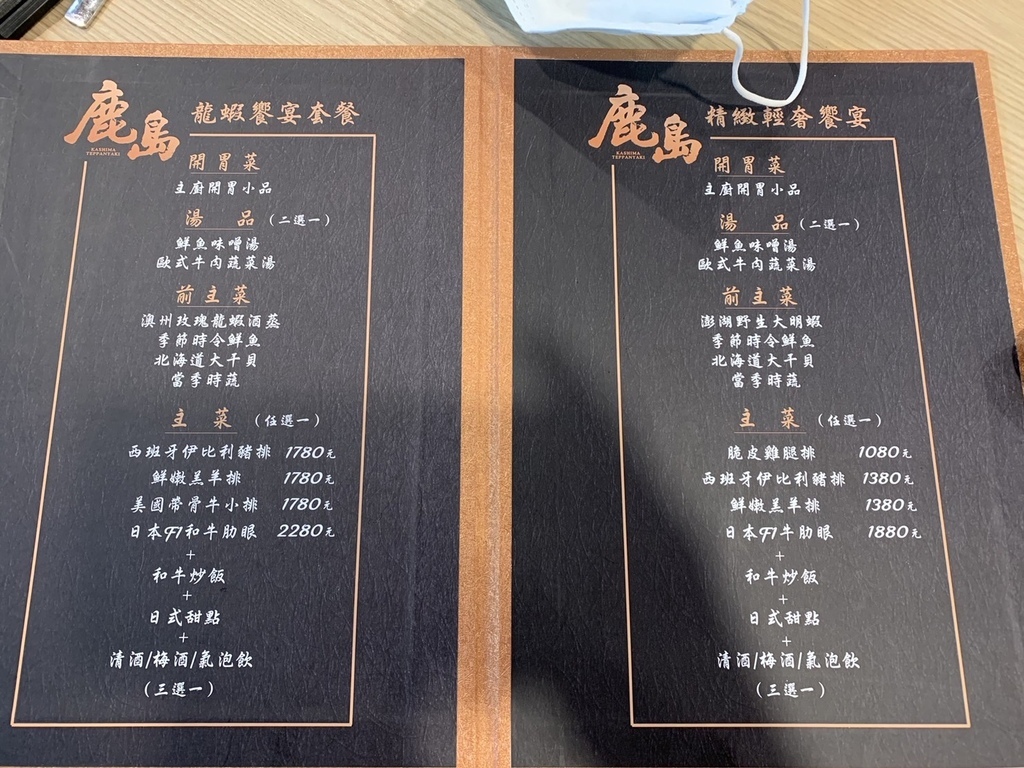 鹿島
KASHIMA
TEPPANYAKI
龍蝦饗宴套餐
開胃菜
主廚開胃小品
湯 品 (二選一)
鮮魚味噌湯
歐式牛肉蔬菜湯
前主菜
澳州玫瑰龍蝦酒蒸
季節時令鮮魚
北海道大干貝
當季時蔬
主 菜 (任選一)
西班牙伊比利豬排 1780元
鮮嫩羔羊排 1780元
美國帶骨牛小排 1780元
日本F1和牛肋眼 2280元
+
和牛炒飯
+
日式甜點
+
清酒/梅酒/氣泡飲
(三選一)
鹿島
KASHIMA
TEPPANYAKI
精緻輕奢饗宴
開胃菜
主廚開胃小品
湯 品 (二選一)
鮮魚味噌湯
歐式牛肉蔬菜湯
前主菜
澎湖野生大明蝦
季節時令鮮魚
北海道大干貝
當季時蔬
主 菜 (任選一)
脆皮雞腿排 1080元
西班牙伊比利豬排 1380元
鮮嫩羔羊排 1380元
日本F1牛肋眼 1880元
+
和牛炒飯
+
日式甜點
+
清酒/梅酒/氣泡飲
(三選一)